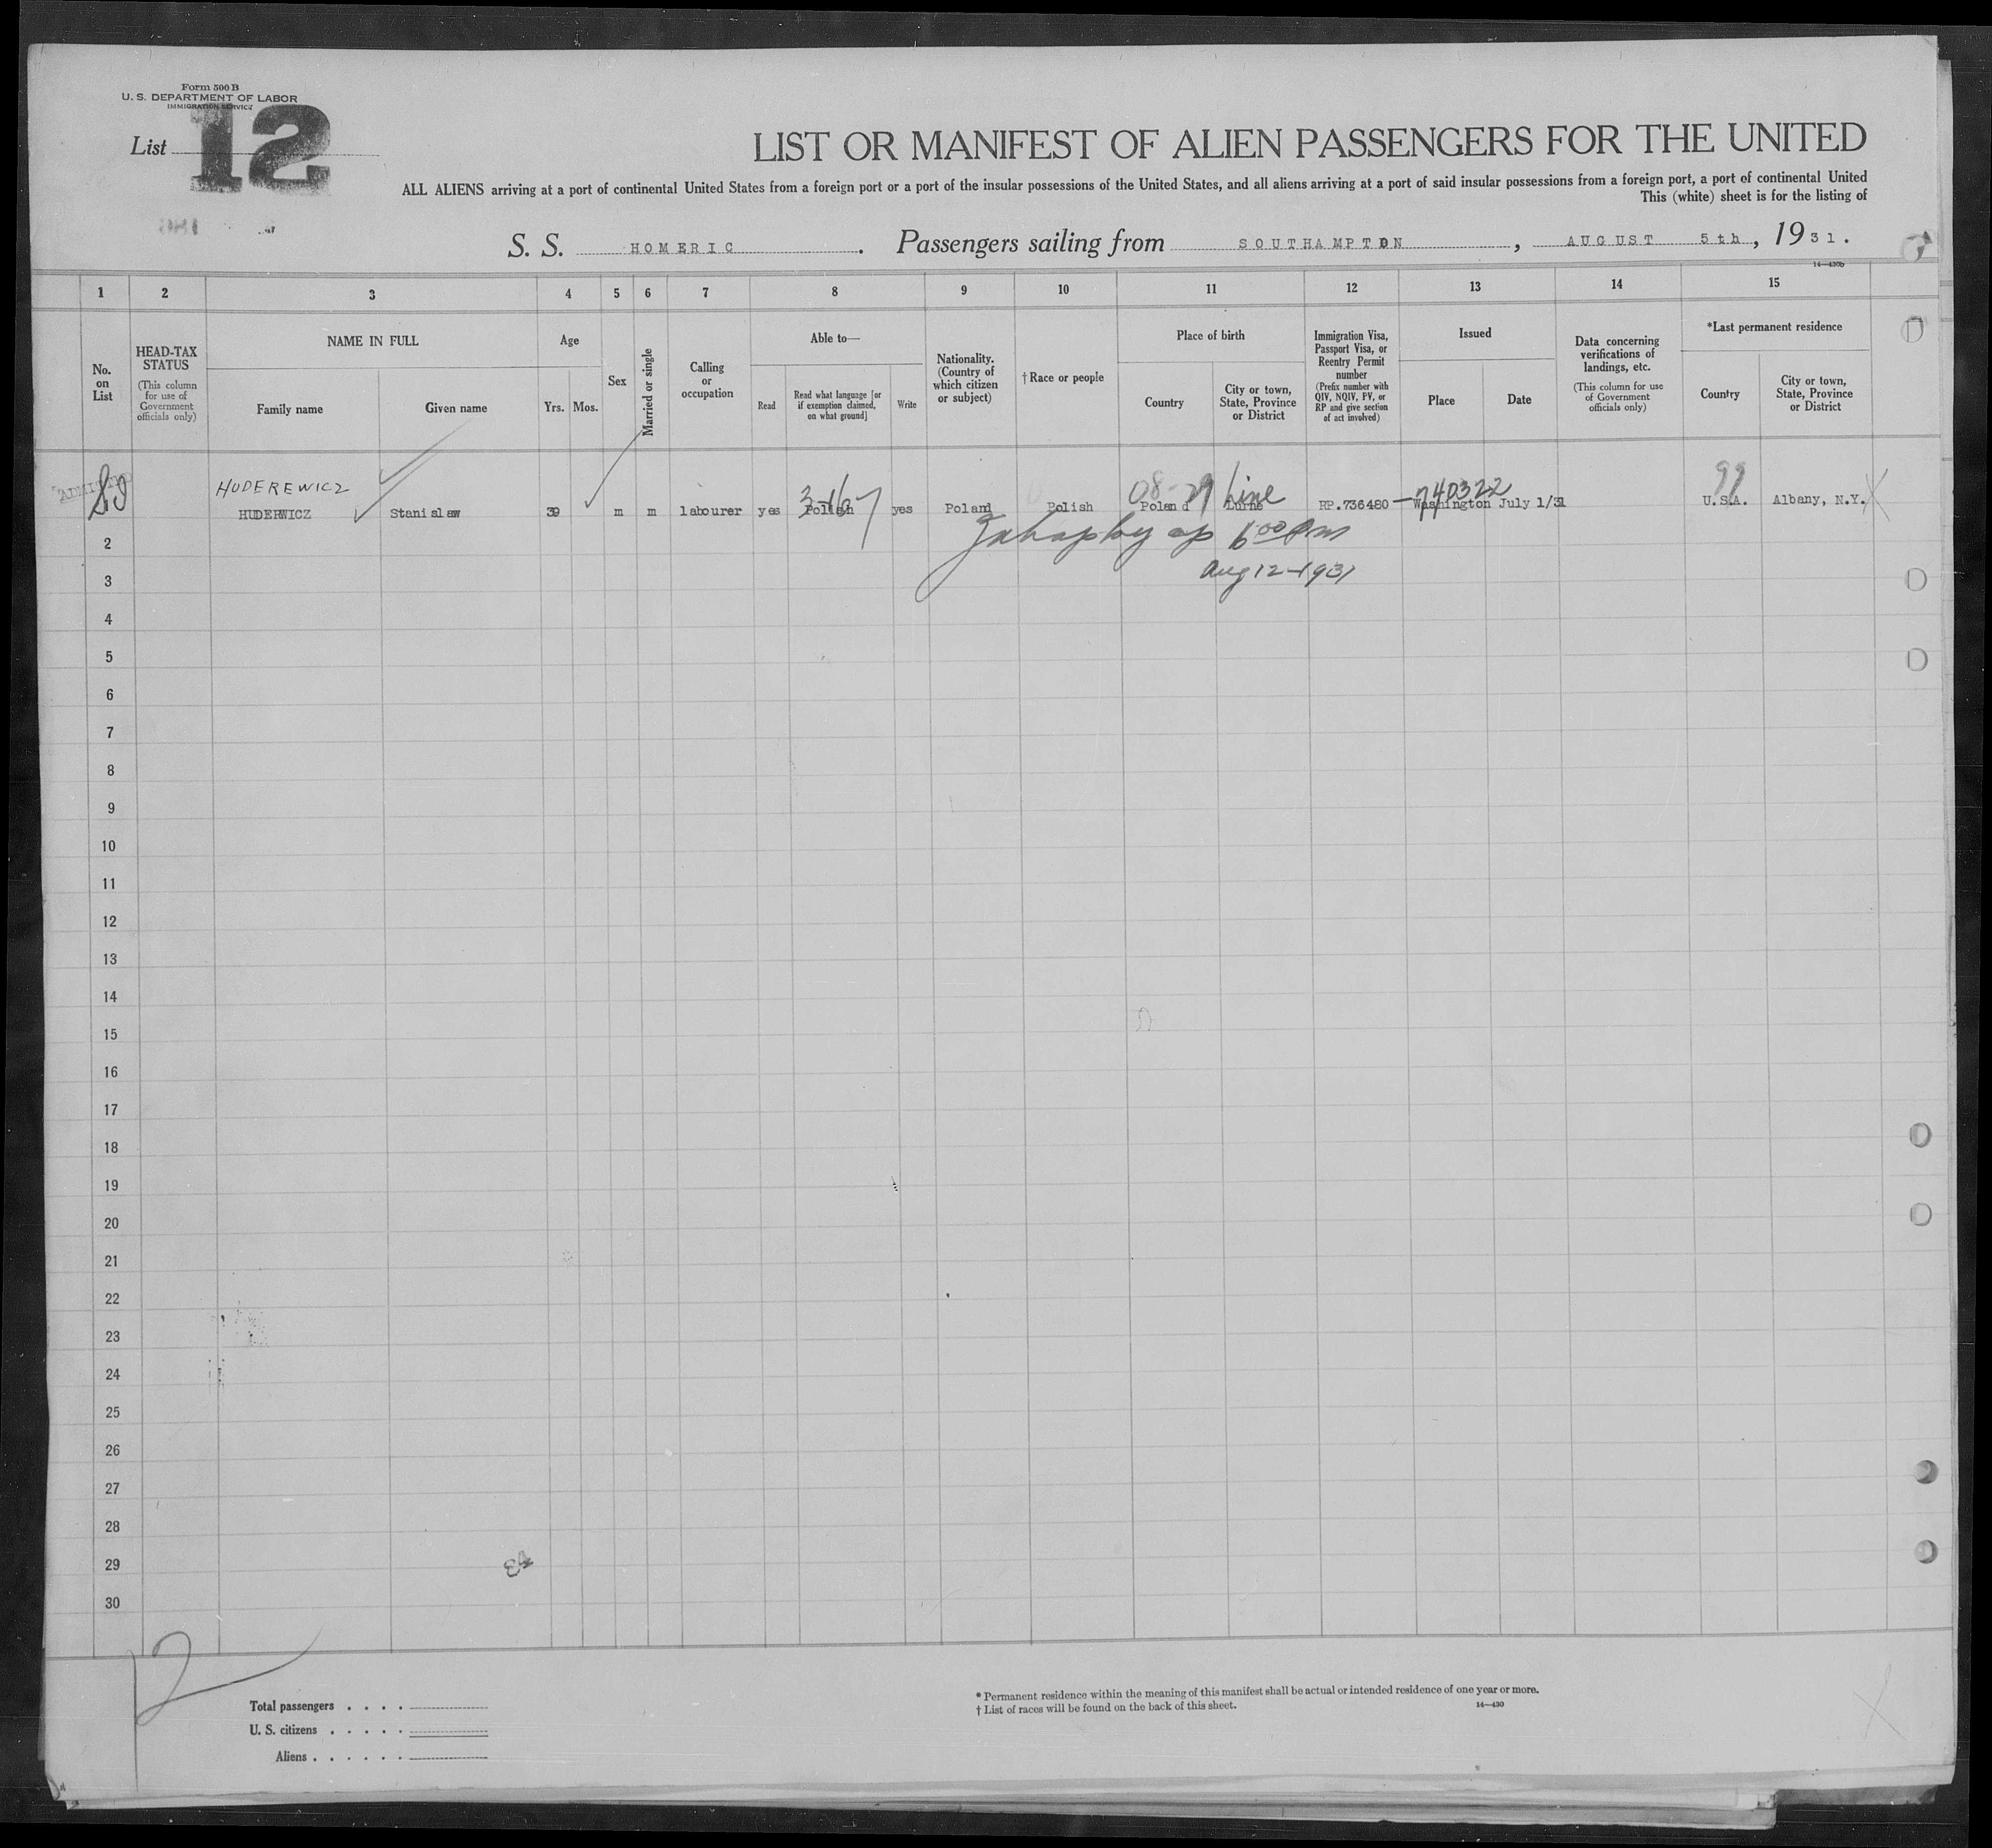 Form 500 B
U. S. DEPARTMENT OF LABOR
IMMIGRATION SERVICE
List 12
LIST OR MANIFEST OF ALIEN PASSENGERS FOR THE UNITED
ALL ALIENS arriving at a port of continental United States from a foreign port or a port of the insular possessions of the United States, and all aliens arriving at a port of said insular possessions from a foreign port, a port of continental United
This (white) sheet is for the listing of
S. S. HOMERIC. Passengers sailing from SOUTHAMPTON, AUGUST 5th, 1931.
14—430b
1 2 3 4 5 6 7 8 9 10 11 12 13 14 15
No. on List
HEAD-TAX STATUS
(This column for use of Government officials only)
NAME IN FULL
Family name
Given name
Age
Yrs. Mos.
Sex
Married or single
Calling or occupation
Able to—
Read
Read what language [or if exemption claimed, on what ground]
Write
Nationality. (Country of which citizen or subject)
†Race or people
Place of birth
Country
City or town, State, Province or District
Immigration Visa, Passport Visa, or Reentry Permit number
(Prefix number with QIV, NQIV, PV, or RP and give section of act involved)
Issued
Place
Date
Data concerning verifications of landings, etc.
(This column for use of Government officials only)
*Last permanent residence
Country
City or town, State, Province or District
ADMITTED
HUDEREWICZ 08-29 Line 740322 99
HUDERWICZ Stanislaw 39 m m labourer yes Polish yes Poland Polish Poland RP.736480 Washington July 1/31 U.S.A. Albany, N.Y.
6 00 pm
Aug 12-1931
2
3
4
5
6
7
8
9
10
11
12
13
14
15
16
17
18
19
20
21
22
23
24
25
26
27
28
29
30
12
Total passengers . . . .
U. S. citizens . . . . .
Aliens . . . . . .
* Permanent residence within the meaning of this manifest shall be actual or intended residence of one year or more.
† List of races will be found on the back of this sheet.
14—430